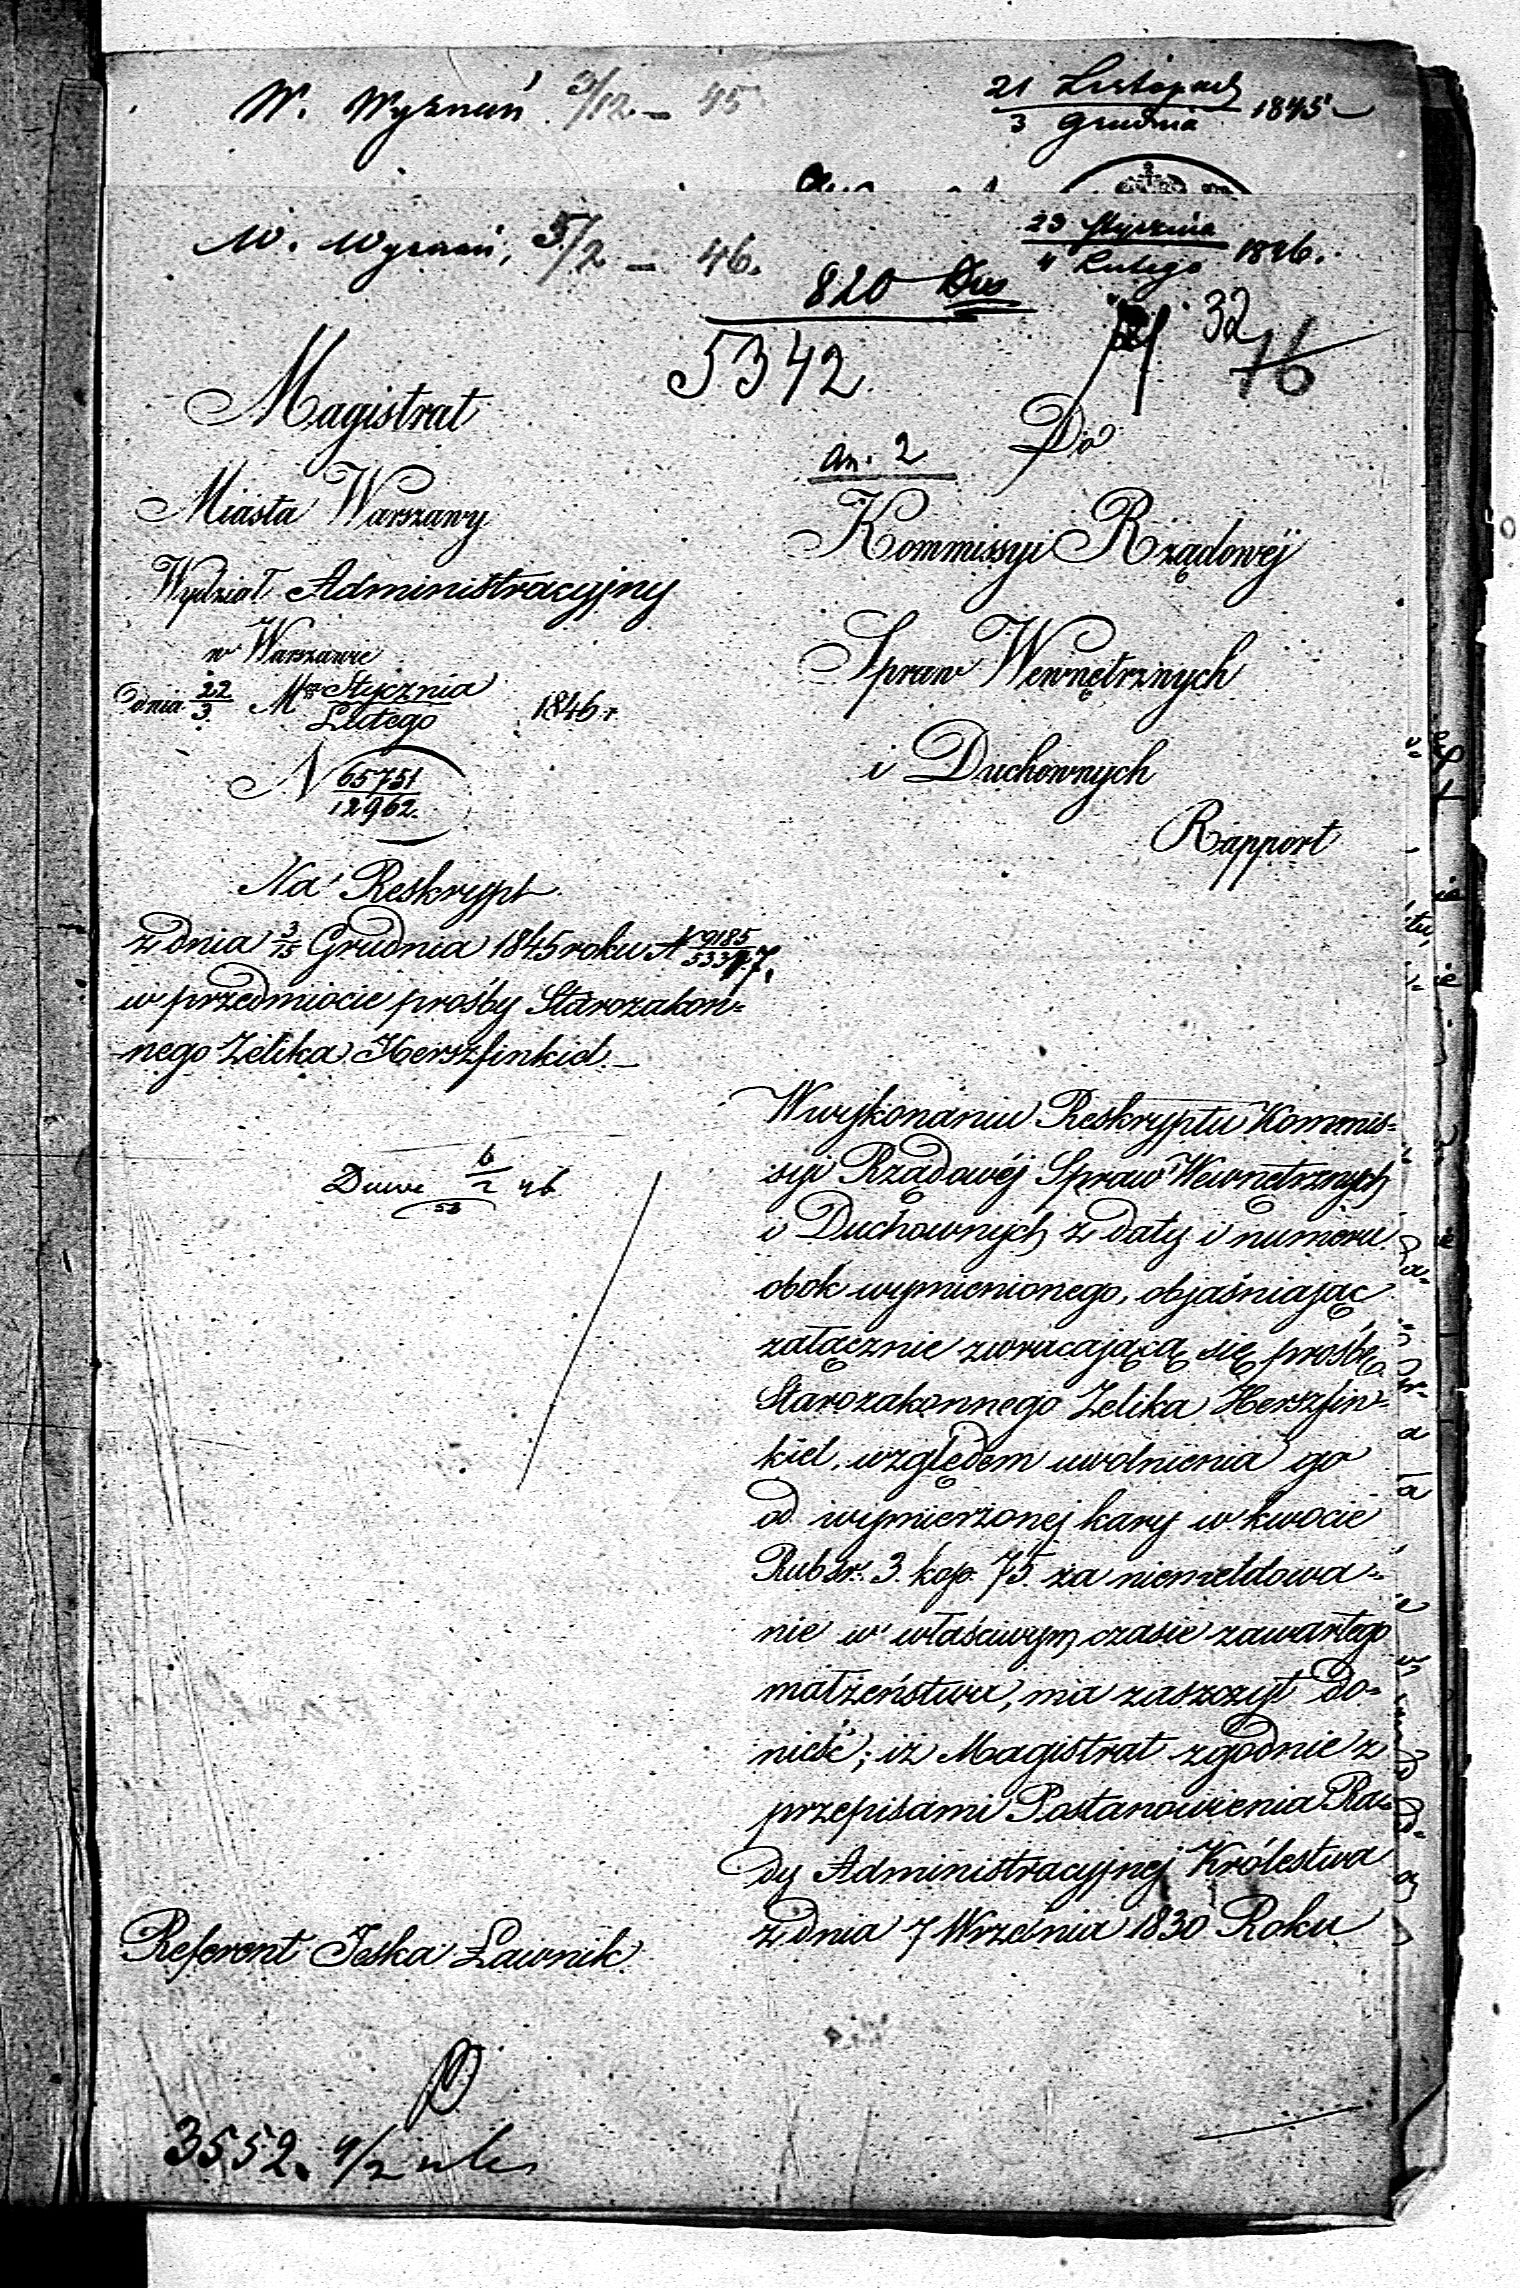 W. Wyznań 3/12 – 45
21 Listopad
3 Grudnia 1845
W. Wyznań, 5/2 – 46.
23 Stycznia
4 Lutego 1846.
820
5342
32
16
Magistrat
Miasta Warszawy
Wydział Administracyjny
w Warszawie
dnia 22/3 Mca Stycznia/Lutego 1846 r
N 65751/12962.
Na Reskrypt
z dnia 3/15 Grudnia 1845 roku N 9185/5337.
w przedmiocie prośby Starozakon=
nego Zelika Herszfinkiel.
6/2 46
an. 2
Do
Kommissyi Rządowéj
Spraw Wewnętrznych
i Duchownych
Rapport
W wykonaniu Reskryptu Kommis=
syi Rządowéj Spraw Wewnętrznych
i Duchownych z daty i numeru
obok wymienionego, objaśniając
załącznie zwracającą się prośbę
Starozakonnego Zelika Herszfin=
kiel, względem uwolnienia go
od wymierzonej kary w kwocie
Rub sr. 3 kop. 75. za niemeldowa=
nie w właściwym czasie zawartego
małżeństwa, ma zaszczyt do=
nieść; iż Magistrat zgodnie z
przepisami Postanowienia Ra=
dy Administracyjnej Królestwa
z dnia 7 Września 1830 Roku
Referent Teska Ławnik
3552. 4/2